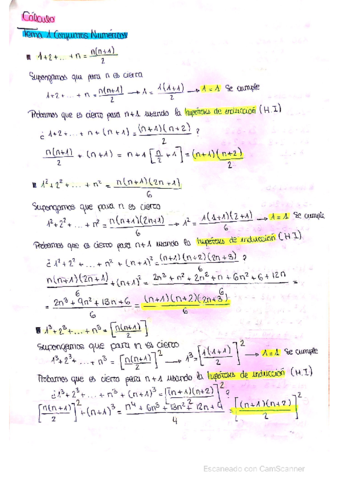 Cálculo
Tema 1: Conjuntos Numéricos
1+2+...+n = n(n+1)/2
Supongamos que para n es cierta
1+2+...+n = n(n+1)/2 → 1 = 1(1+1)/2 → 1=1 Se cumple
Probamos que es cierto para n+1 usando la hipótesis de inducción (H.I)
¿ 1+2+...+n+(n+1) = (n+1)(n+2)/2 ?
n(n+1)/2 + (n+1) = n+1 [n/2 + 1] = (n+1)(n+2)/2
1²+2²+...+n² = n(n+1)(2n+1)/6
Supongamos que para n es cierto
1²+2²+...+n² = n(n+1)(2n+1)/6 → 1² = 1(1+1)(2+1)/6 → 1=1 Se cumple
Probamos que es cierto para n+1 usando la hipótesis de inducción (H.I)
¿ 1²+2²+...+n²+(n+1)² = (n+1)(n+2)(2n+3)/6 ?
n(n+1)(2n+1)/6 + (n+1)² = 2n³+n²+2n²+n+6n²+6+12n/6 =
= 2n³+9n²+13n+6/6 = (n+1)(n+2)(2n+3)/6
1³+2³+...+n³ = [n(n+1)/2]
Supongamos que para n es cierto
1³+2³+...+n³ = [n(n+1)/2]² → 1³ = [1(1+1)/2]² → 1=1 Se cumple
Probamos que es cierto para n+1 usando la hipótesis de inducción (H.I)
¿ 1³+2³+...+n³+(n+1)³ = [(n+1)(n+2)/2]² ?
[n(n+1)/2]² + (n+1)³ = n⁴+6n³+13n²+12n+4/4 = [(n+1)(n+2)/2]²
Escaneado con CamScanner